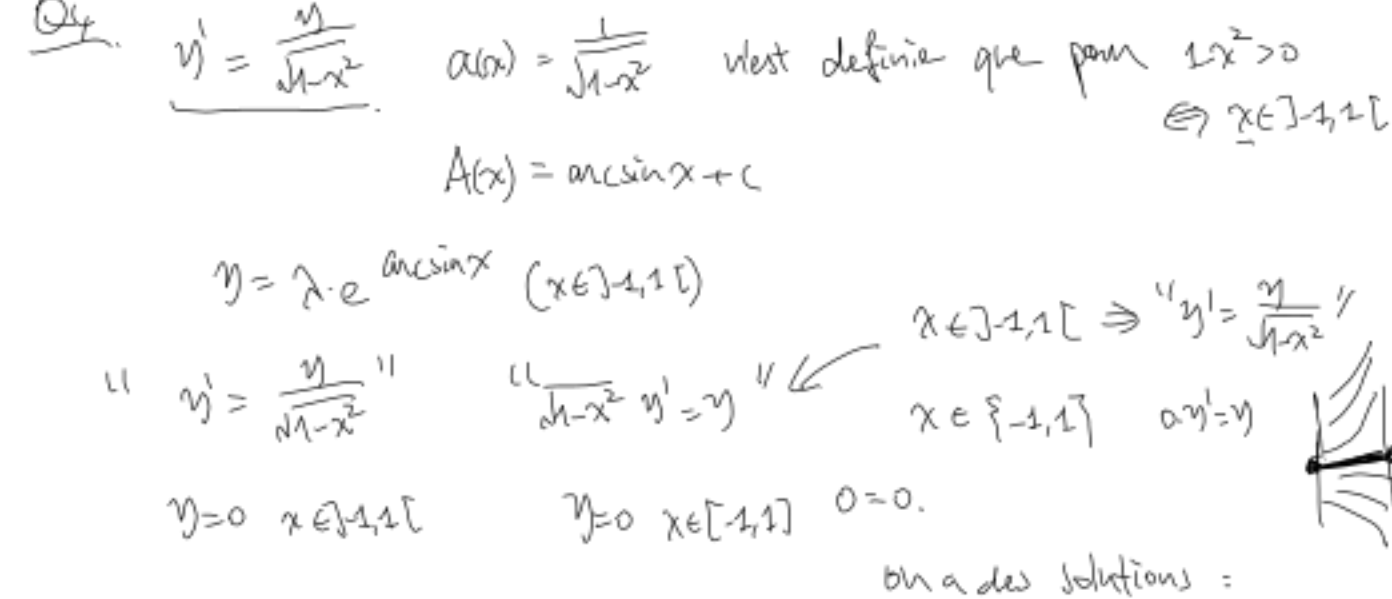 Q4. y' = y/√(1-x²) a(x) = 1/√(1-x²) n'est definie que pour 1-x²>0
⇔ x∈]-1,1[
A(x) = arcsin x + c
y = λ·e^(arcsin x) (x∈]-1,1[)
x∈]-1,1[ ⇒ "y' = y/√(1-x²)"
" y' = y/√(1-x²) " "√(1-x²) y' = y"
x∈{-1,1} 0y'=y
y=0 x∈]-1,1[ y=0 x∈[-1,1] 0=0.
on a des solutions :